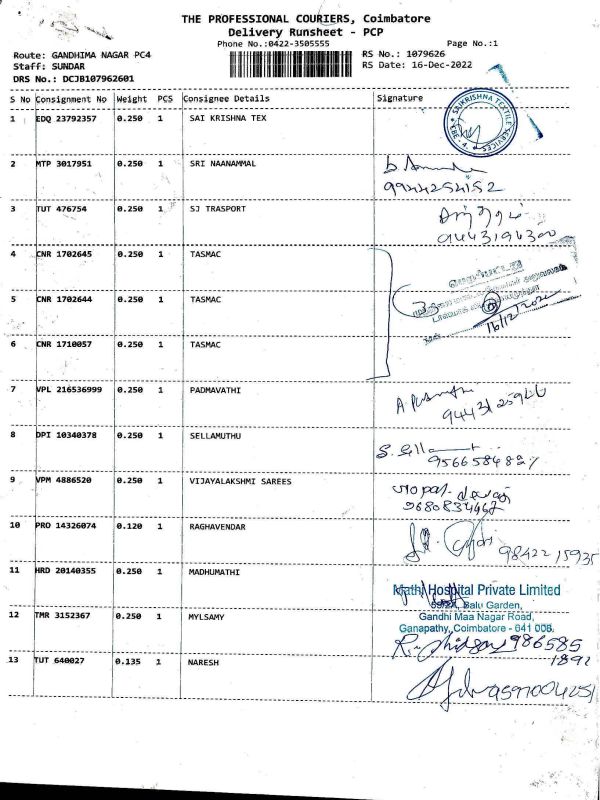 THE PROFESSIONAL COURIERS, Coimbatore
Delivery Runsheet - PCP
Phone No.:0422-3505555 Page No.:1
Route: GANDHIMA NAGAR PC4 RS No.: 1079626
Staff: SUNDAR RS Date: 16-Dec-2022
DRS No.: DCJB107962601
S No Consignment No Weight PCS Consignee Details Signature
1 EDQ 23792357 0.250 1 SAI KRISHNA TEX
SAIKRISHNA TEXTILE SERVICES
2 MTP 3017951 0.250 1 SRI NAANAMMAL
9944254152
3 TUT 476754 0.250 1 SJ TRASPORT
4 CNR 1702645 0.250 1 TASMAC
5 CNR 1702644 0.250 1 TASMAC
16/12/2022
6 CNR 1710057 0.250 1 TASMAC
7 VPL 216536999 0.250 1 PADMAVATHI
8 DPI 10340378 0.250 1 SELLAMUTHU
9 VPM 4886520 0.250 1 VIJAYALAKSHMI SAREES
10 PRO 14326074 0.120 1 RAGHAVENDAR
9842215935
11 HRD 20140355 0.250 1 MADHUMATHI
Mathi Hospital Private Limited
Balu Garden,
Gandhi Maa Nagar Road,
Ganapathy, Coimbatore - 641 006.
12 TMR 3152367 0.250 1 MYLSAMY
986585
1892
13 TUT 640027 0.135 1 NARESH